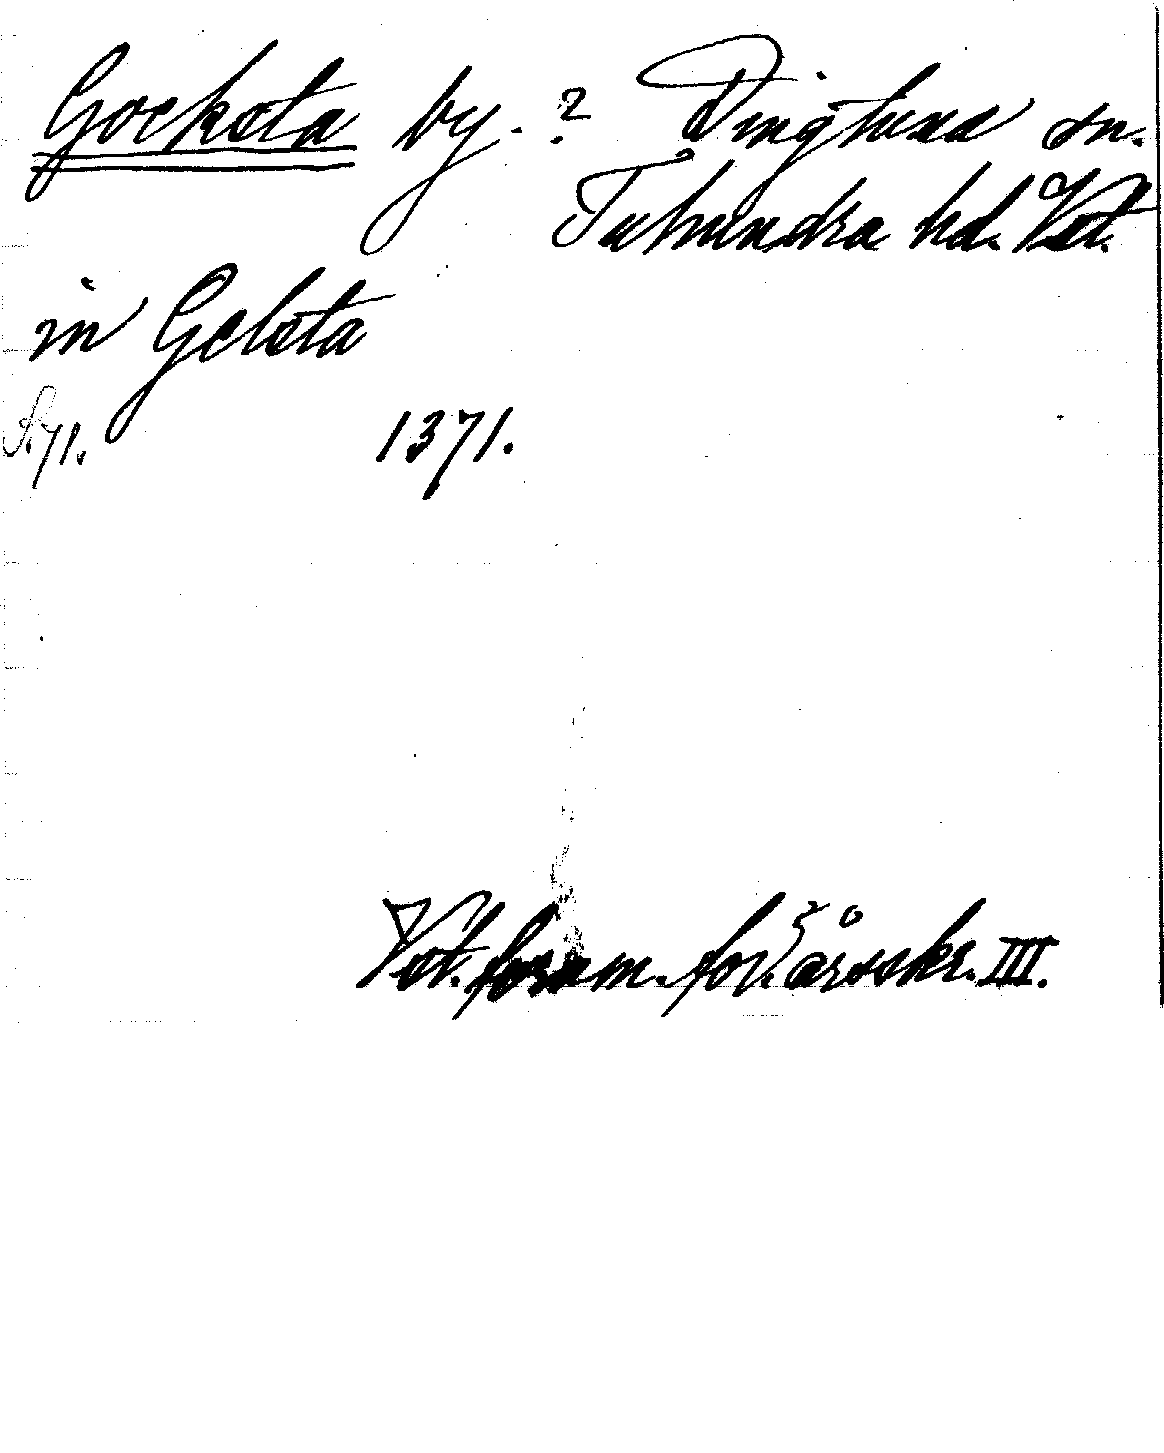 Gocksta by. ? Dingtuna sn.
Tuhundra hd. Vst.
in Gelsta
S.71. 1371.
Vst. fornm. för. årsskr. III.